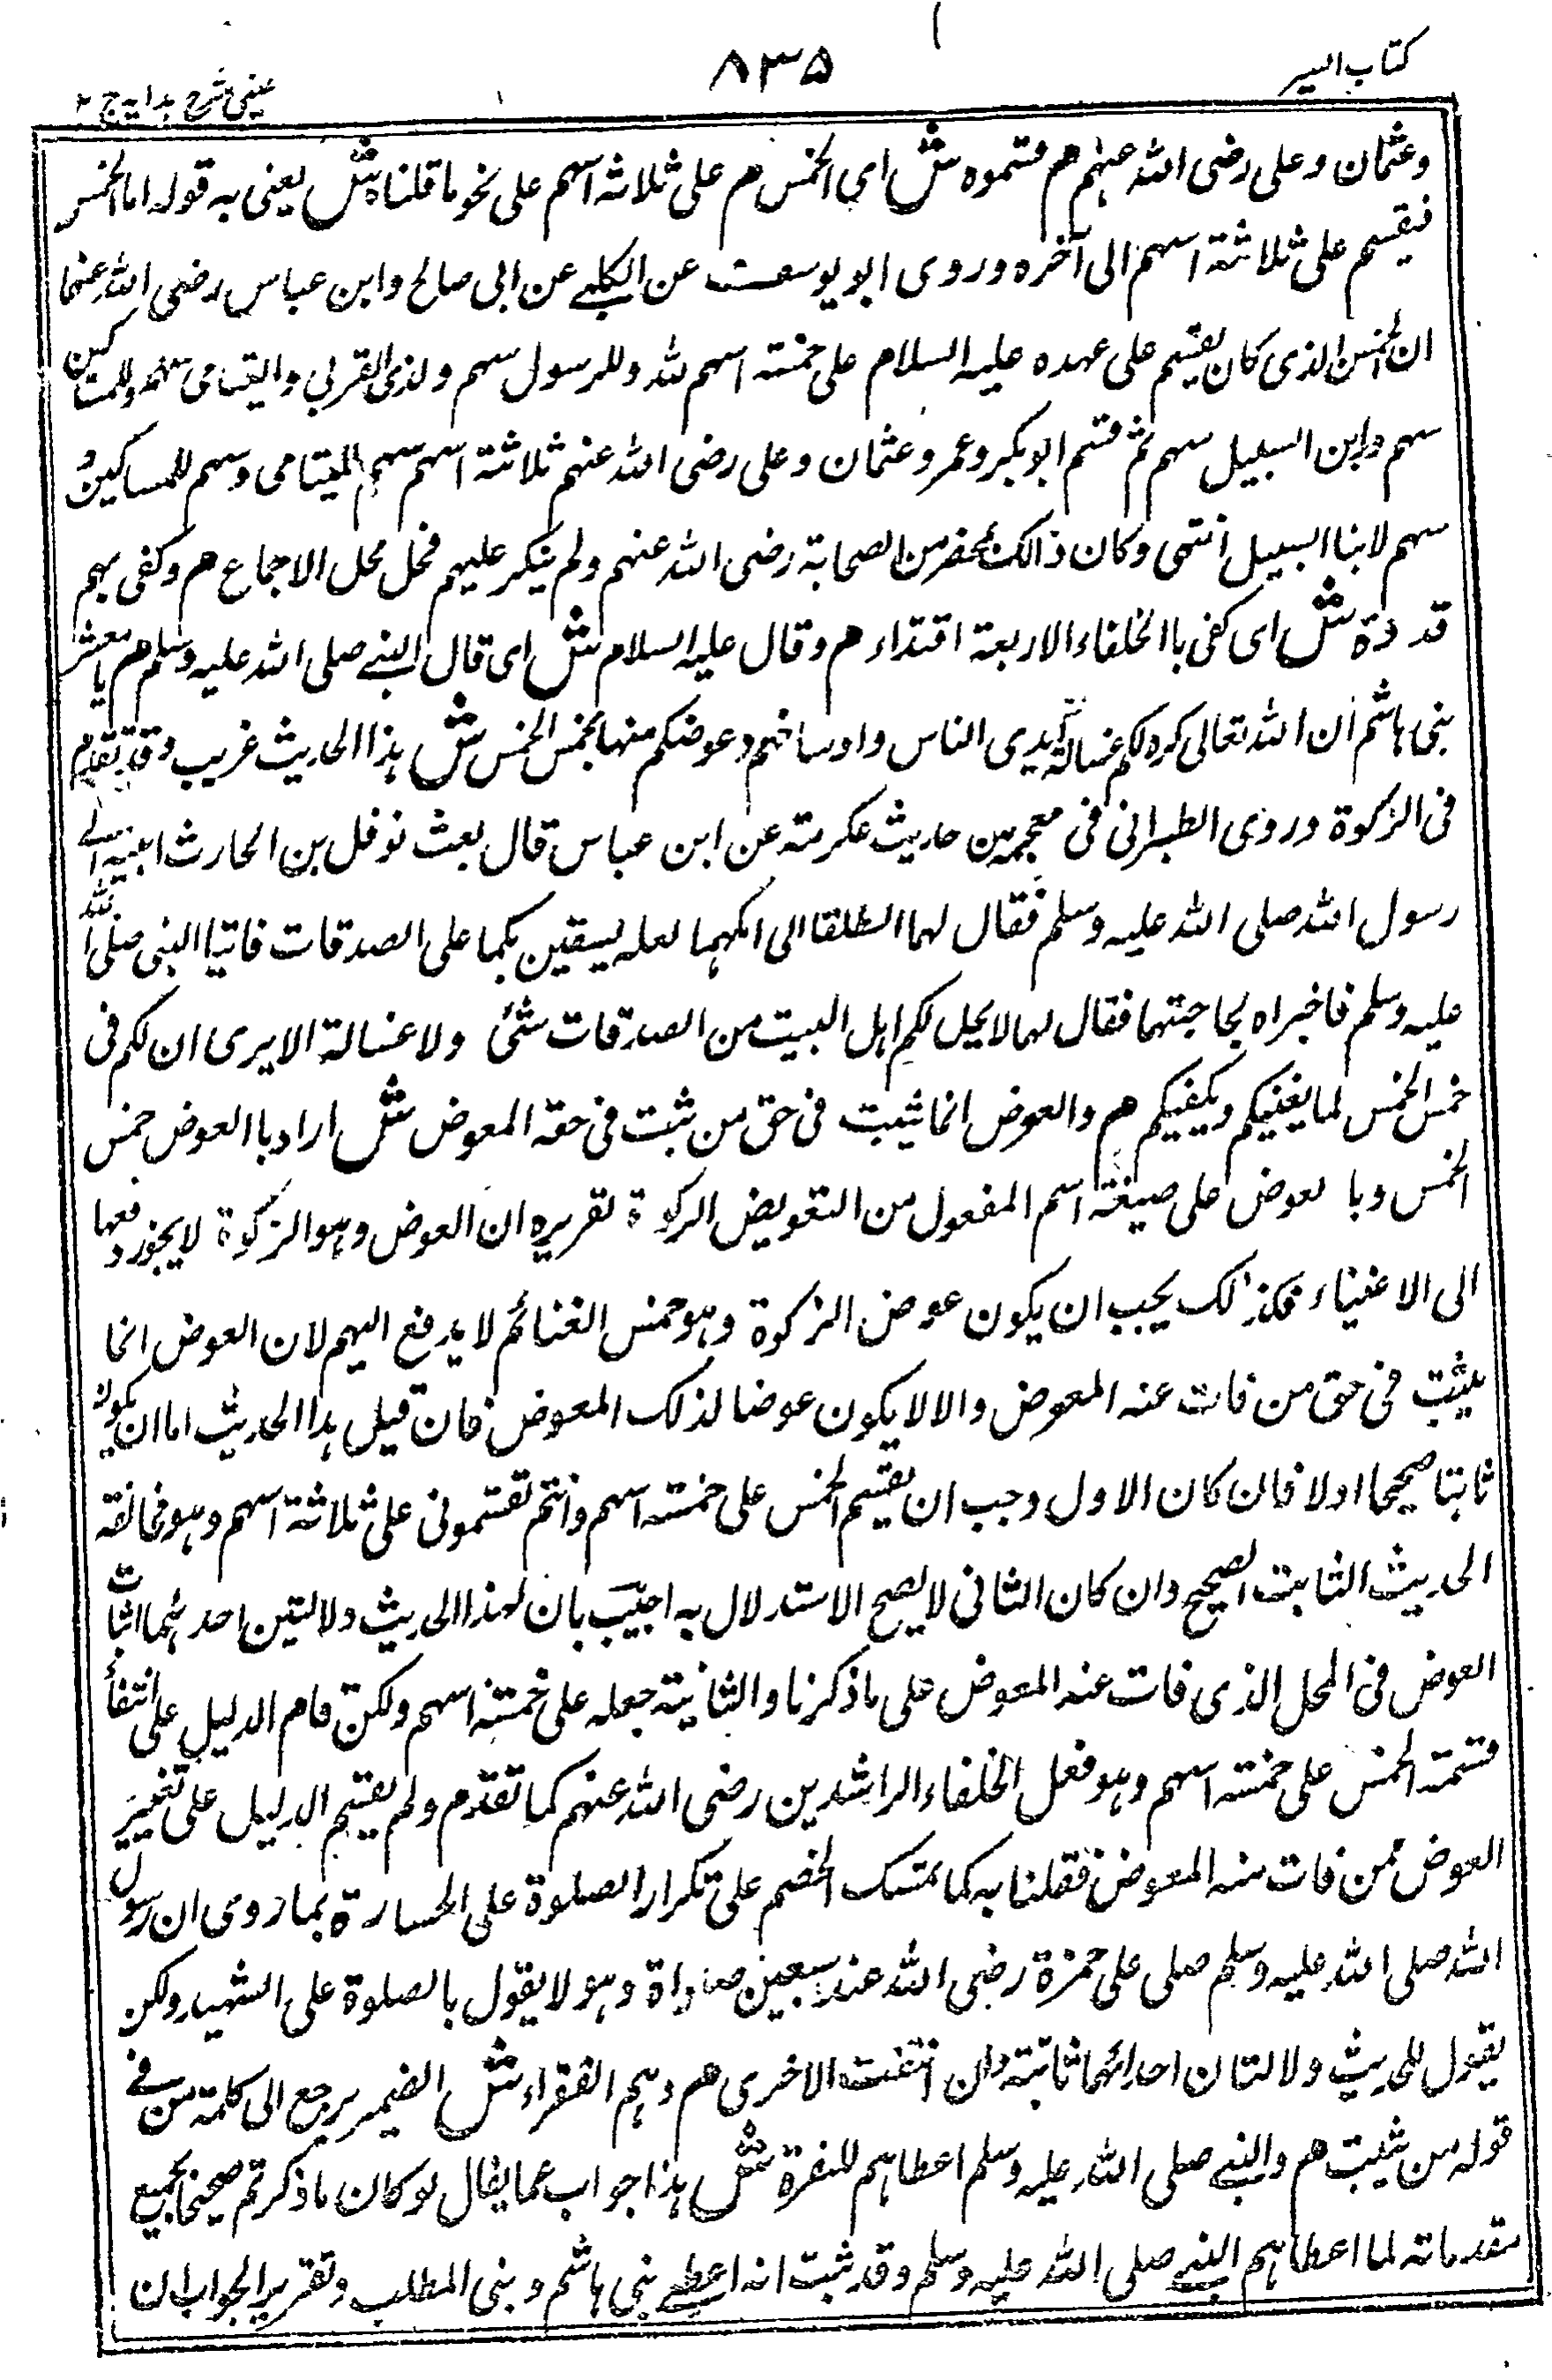 كتاب السير
٨٣٥
عینی شرح ہدایہ ج ٢
وعثمان وعلى رضى الله عنہم هم قسموه ش اى الخمس م على ثلاثة اسہم على نحو ما قلناه ش يعنى به قوله اما الخمس
فيقسم على ثلاثة اسهم الى آخره وروى ابو يوسف عن الكلبے عن ابى صالح وابن عباس رضى الله عنہما
ان الخمس الذى كان يقسم على عهده عليه السلام على خمسة اسهم لله وللرسول سهم ولذى القربى واليتامى سهم وللمساكين
سهم وابن السبيل سهم ثم قسم ابو بكر وعمر وعثمان وعلى رضى الله عنهم ثلاثة اسهم سهم لليتامى وسهم للمساكين و
سهم لابناا لسبيل انتهى وكان ذالك بمحضر من الصحابة رضى الله عنهم ولم ينكر عليهم فحل محل الاجماع هم وكفى بهم
قدوة ش اى كفى باالخلفاء الاربعة اقتداء هم وقال عليه السلام ش اى قال النبے صلى الله عليه وسلم هم يا معشر
بنى ہاشم ان الله تعالى كره لكم غسالة ايدى الناس واوساخہم وعوضكم منها بخمس الخمس ش ہذا الحديث غريب وقد تقدم
فى الزكوة وروى الطبرانى فى معجمه من حديث عكرمة عن ابن عباس قال بعث نوفل بن الحارث ابنيه الے
رسول الله صلى الله عليه وسلم فقال لهما انطلقا الى ابكما لعله يستعين بكما على الصدقات فاتيا النبى صلى الله
عليه وسلم فاخبراه بحاجتهما فقال لهما لا يحل لكم اہل البيت من الصدقات شئ ولا غسالة الايدى ان لكم فى
خمس الخمس لما يغنيكم ويكفيكم هم والعوض انما يثبت فى حق من ثبت فى حقه المعوض ش اراد باالعوض خمس
الخمس وبا لعوض على صيغة اسم المفعول من التعويض الزكوة تقريره ان العوض وہو الزكوة لا يجوز دفعها
الى الاغنياء فكذلك يجب ان يكون عوض الزكوة وہو خمس الغنائم لا يدفع اليهم لان العوض انما
يثبت فى حق من فات عنه المعوض والا لا يكون عوضا لذلك المعوض فان قيل ہذا الحديث اما ان يكون
ثابتا صحيحا اولا فان كان الاول وجب ان يقسم الخمس على خمسة اسہم وانتم تقسمونى على ثلاثة اسهم وہو مخالفة
الحديث الثابت الصحيح وان كان الثانى لا يصح الاستدلال به اجيب بان لهذا الحديث دلالتين احدہما اثبات
العوض فى المحل الذى فات عنه المعوض على ما ذكرنا والثانية جعله على خمسة اسهم ولكن قام الدليل على انتفاء
قسمة الخمس على خمسة اسهم وہو فعل الخلفاء الراشدين رضى الله عنهم كما تقدم ولم يقسم الدليل على تغيير
العوض ممن فات منه المعوض فقلنا به كما تمسك الخصم على تكرار الصلوة على الجسارة بما روى ان رسول
الله صلى الله عليه وسلم صلى على حمزة رضى الله عنه سبعين صلواة وہو لا يقول بالصلوة على الشهيد ولكن
يقول للحديث دلالتان احدائهما ثابتة وان انتفت الاخرى هم وہم الفقراء ش الضمير يرجع الى كلمة من فے
قوله من يثبت هم والنبے صلى الله عليه وسلم اعطاہم للنصرة ش ہذا جواب عما يقال لو كان ما ذكرتم صحيحا بجميع
مقدماته لما اعطاہم النبے صلى الله عليه وسلم وقد ثبت انه اعطے بنى ہاشم وبنى المطلب وتقرير الجواب ان